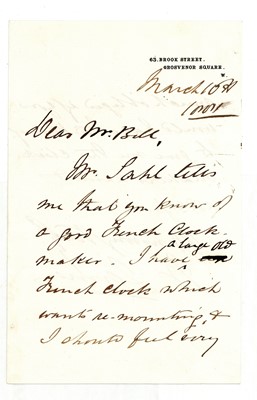 63, BROOK STREET,
GROSVENOR SQUARE,
W.
March 10th
Dear Mr. Bell,
Mr. Sahl tells
me that you know of
a good French Clock-
maker. I have a large old
French clock which
wants re-mounting, &
I should feel very